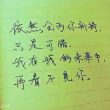 依然会为你祈祷
只是可惜
我在我的未来中
再看不见你